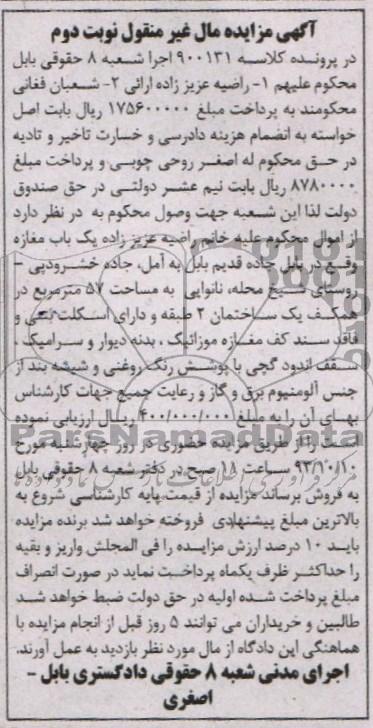 آگهی مزایده مال غیر منقول نوبت دوم
در پرونده کلاسه ۹۰۰۱۳۱ اجرا شعبه ۸ حقوقی بابل
محکوم علیهم ۱- راضیه عزیز زاده ارائی ۲- شعبان فغانی
محکومند به پرداخت مبلغ ۱۷۵۶۰۰۰۰۰ ریال بابت اصل
خواسته به انضمام هزینه دادرسی و خسارت تاخیر و تادیه
در حق محکوم له اصغر روحی چوبی و پرداخت مبلغ
۸۷۸۰۰۰۰ ریال بابت نیم عشر دولتی در حق صندوق
دولت لذا این شعبه جهت وصول محکوم به در نظر دارد
از اموال محکوم علیه خانم راضیه عزیز زاده یک باب مغازه
وقع در بابل جاده قدیم بابل به آمل، جاده خشرودپی -
روستای شیخ محله، نانوایی به مساحت ۵۷ مترمربع در
همکف یک ساختمان ۲ طبقه و دارای اسکلت بتنی و
فاقد سند کف مغازه موزائیک، بدنه دیوار و سرامیک،
سقف اندود گچی با پوشش رنگ روغنی و شیشه بند از
جنس آلومنیوم برق و گاز و رعایت جمیع جهات کارشناس
بهای آن را به مبلغ ۴۰۰/۰۰۰/۰۰۰ ریال ارزیابی نموده
است را از طریق مزایده حضوری در روز چهارشنبه مورخ
۹۳/۱۰/۱۰ ساعت ۱۱ صبح در دفتر شعبه ۸ حقوقی بابل
به فروش برساند مزایده از قیمت پایه کارشناسی شروع به
بالاترین مبلغ پیشنهادی فروخته خواهد شد برنده مزایده
باید ۱۰ درصد ارزش مزایده را فی المجلس واریز و بقیه
را حداکثر ظرف یکماه پرداخت نماید در صورت انصراف
مبلغ پرداخت شده اولیه در حق دولت ضبط خواهد شد
طالبین و خریداران می توانند ۵ روز قبل از انجام مزایده با
هماهنگی این دادگاه از مال مورد نظر بازدید به عمل آورند.
اجرای مدنی شعبه ۸ حقوقی دادگستری بابل -
اصغری
ParsNamadData